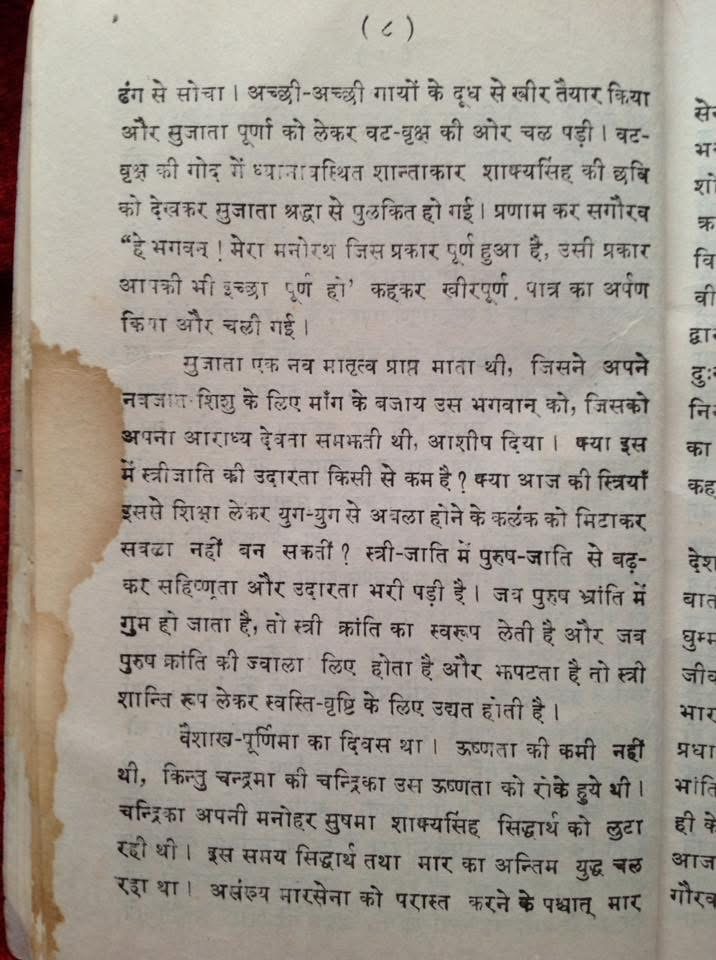 ( ८ )
ढंग से सोचा । अच्छी-अच्छी गायों के दूध से खीर तैयार किया
और सुजाता पूर्णा को लेकर वट-वृक्ष की ओर चल पड़ी । वट-
वृक्ष की गोद में ध्यानावस्थित शान्ताकार शाक्यसिंह की छवि
को देखकर सुजाता श्रद्धा से पुलकित हो गई । प्रणाम कर सगौरव
“हे भगवन् ! मेरा मनोरथ जिस प्रकार पूर्ण हुआ है, उसी प्रकार
आपकी भी इच्छा पूर्ण हो’ कहकर खीरपूर्ण पात्र का अर्पण
किया और चली गई ।
सुजाता एक नव मातृत्व प्राप्त माता थी, जिसने अपने
नवजात-शिशु के लिए माँग के बजाय उस भगवान् को, जिसको
अपना आराध्य देवता समझती थी, आशीष दिया । क्या इस
में स्त्रीजाति की उदारता किसी से कम है ? क्या आज की स्त्रियाँ
इससे शिक्षा लेकर युग-युग से अबला होने के कलंक को मिटाकर
सबला नहीं बन सकतीं ? स्त्री-जाति में पुरुष-जाति से बढ़-
कर सहिष्णुता और उदारता भरी पड़ी है । जब पुरुष भ्रांति में
गुम हो जाता है, तो स्त्री क्रांति का स्वरूप लेती है और जब
पुरुष क्रांति की ज्वाला लिए होता है और झपटता है तो स्त्री
शान्ति रूप लेकर स्वस्ति-वृष्टि के लिए उद्यत होती है ।
वैशाख-पूर्णिमा का दिवस था । ऊष्णता की कमी नहीं
थी, किन्तु चन्द्रमा की चन्द्रिका उस ऊष्णता को रोके हुये थी ।
चन्द्रिका अपनी मनोहर सुषमा शाक्यसिंह सिद्धार्थ को लुटा
रही थी । इस समय सिद्धार्थ तथा मार का अन्तिम युद्ध चल
रहा था । असंख्य मारसेना को परास्त करने के पश्चात् मार
शो
क्र
वि
वी
दुः
का
कह
देश
बात
घुम्म
जीव
भार
प्रधा
भांति
ही के
आज
गौरव